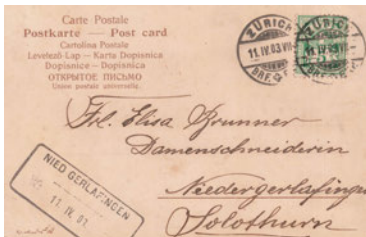 Carte Postale
Postkarte — Post card
Cartolina Postale
Levelező-Lap – Karta Dopisnica
Dopisnice – Dopisnica
ОТКРЫТОЕ ПИСЬМО
Union postale universelle.
ZÜRICH
11.IV.03.VII
BRF.
ZÜRICH
11.IV.03
BRF.
Frl. Elisa Brunner
Damenschneiderin
Niedergerlafingen
Solothurn
NIED GERLAFINGEN
11. IV. 03